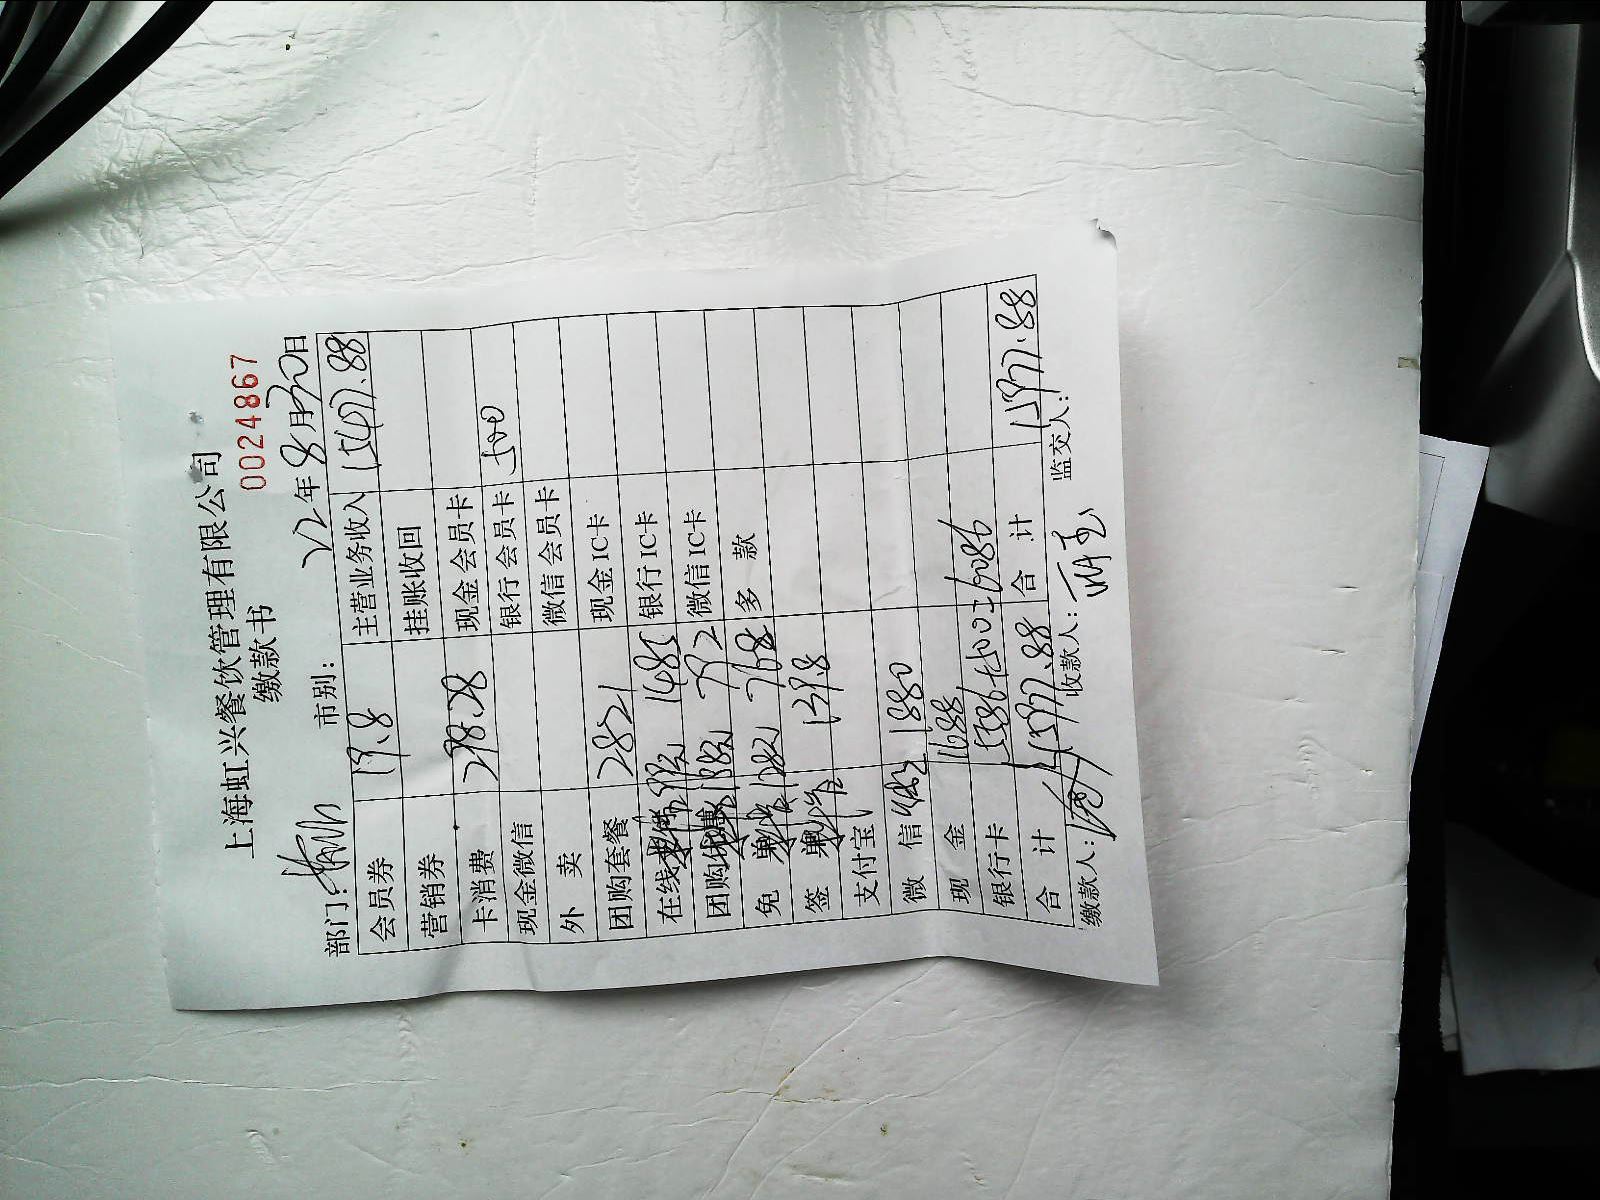 上海虹兴餐饮管理有限公司
缴款书
0024867
部门: 市别: 22年8月30日
会员券 17.8 主营业务收入 15477.88
营销券 挂账收回
卡消费 298.28 现金会员卡
现金微信 银行会员卡 500
外 卖 微信会员卡
团购套餐 2821 现金IC卡
在线 1485 银行IC卡
团购 772 微信IC卡
免 768 多 款
签 137.8
支付宝
微 信 1880
现 金 1688
银行卡 5586+500=6086
合 计 15977.88 合 计 15977.88
缴款人: 收款人: 监交人: